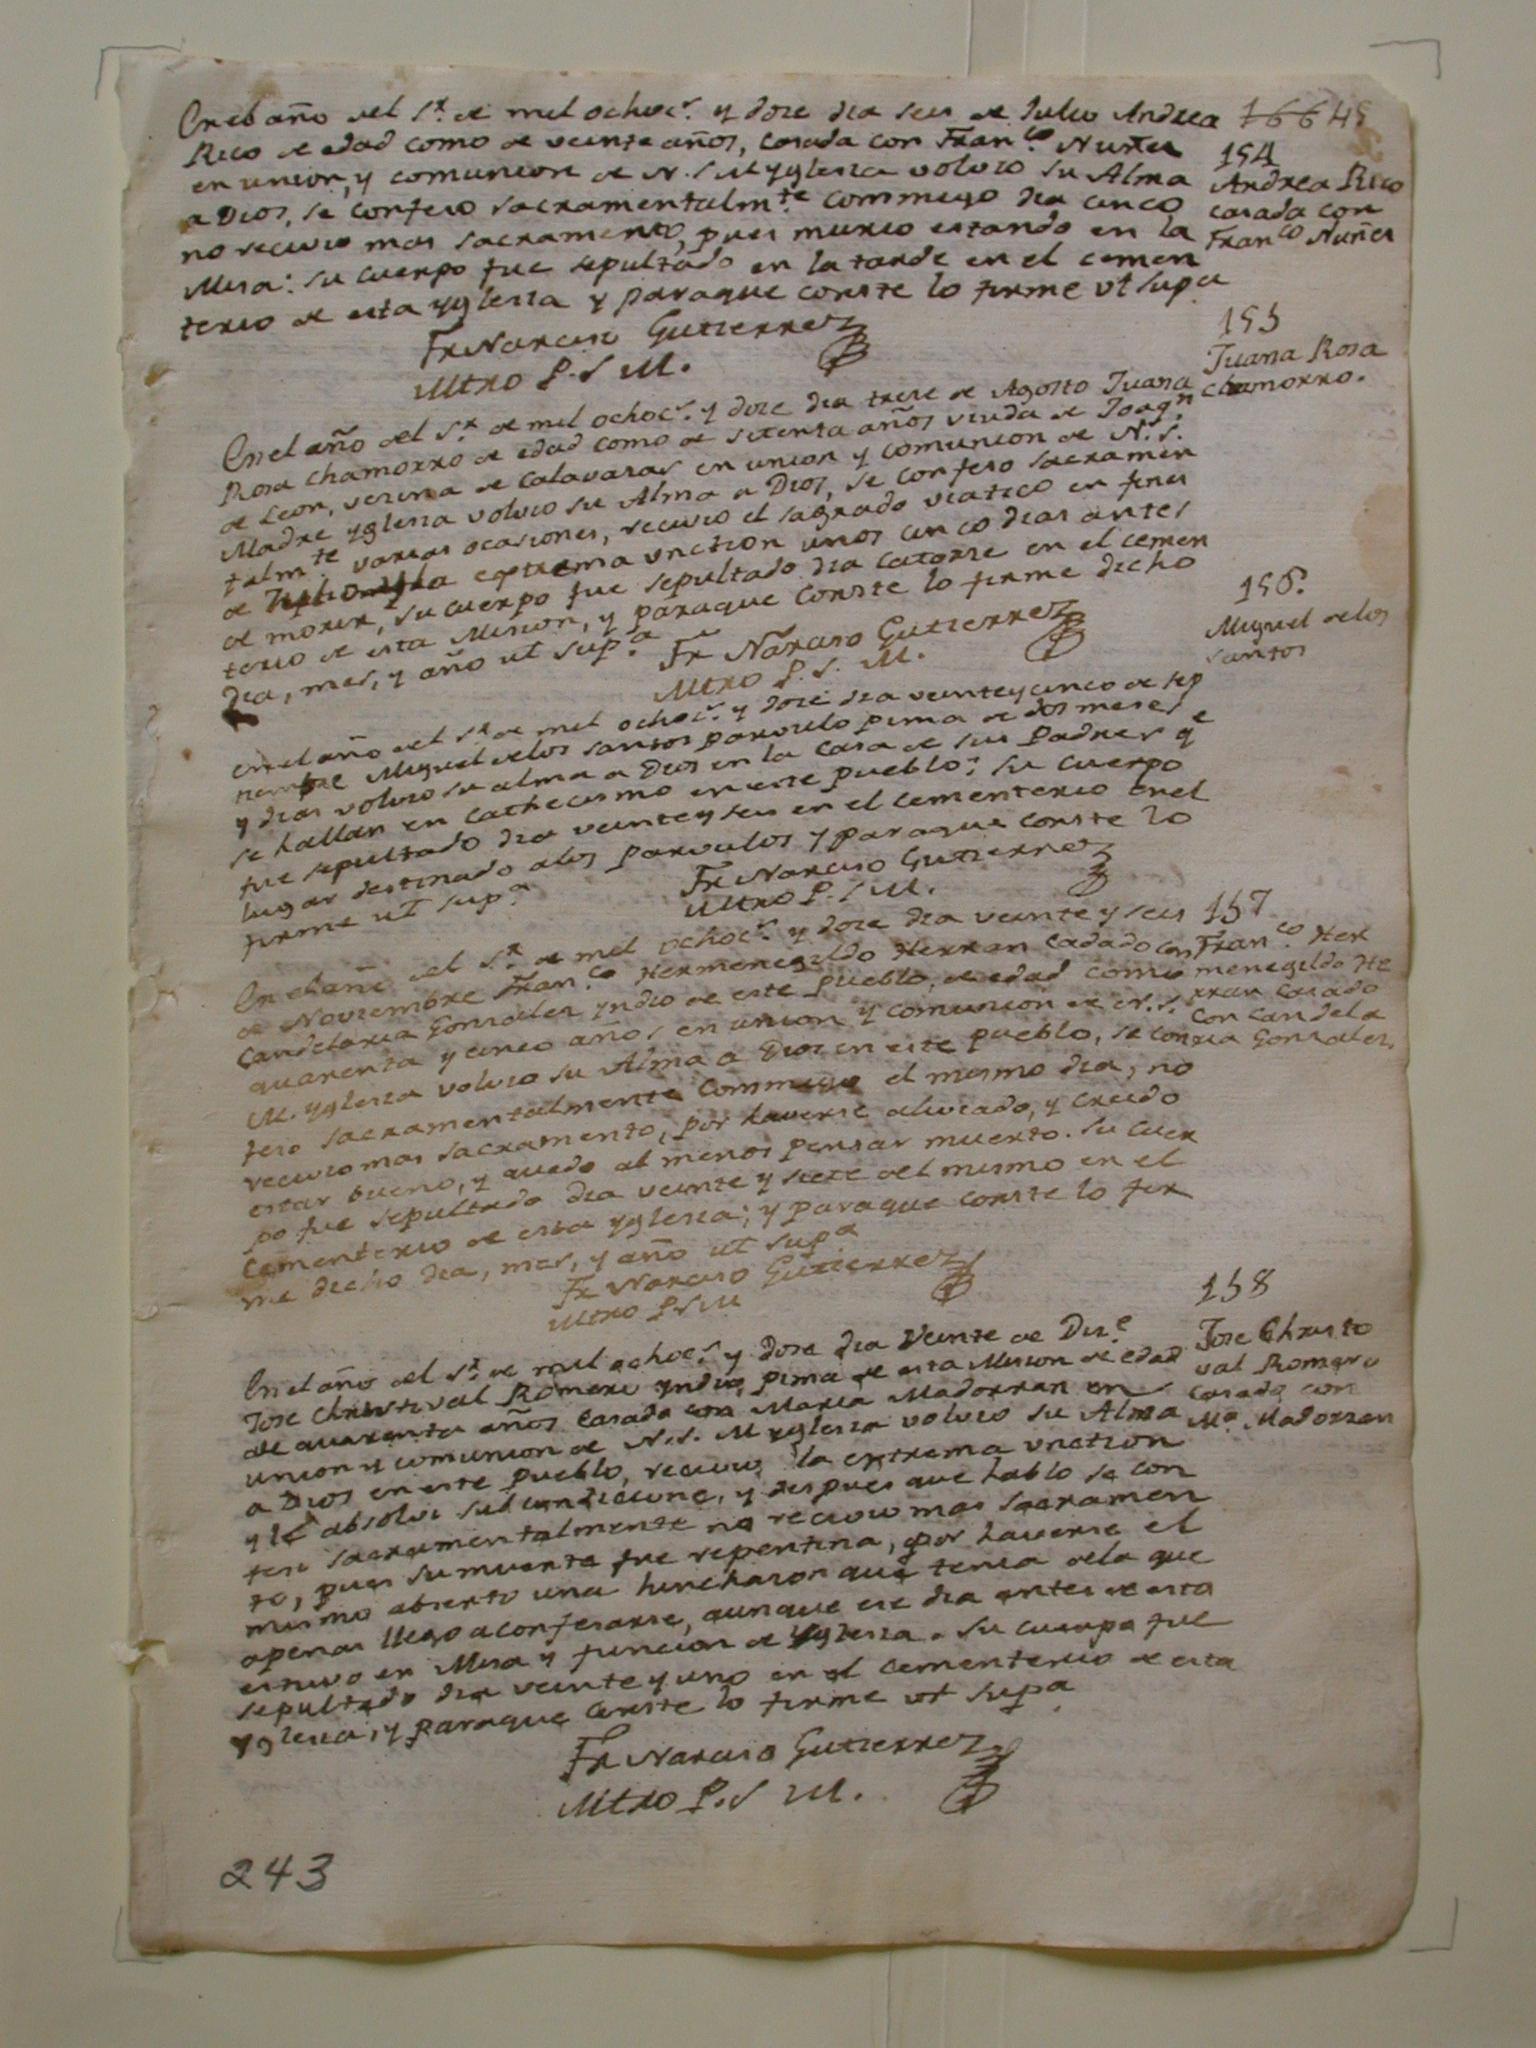 En el año del S.r de mil ochoc.s y dose dia seis de Julio Andrea
Rico de edad como de veinte años, casada con Fran.co Nuñes
en union, y comunion de N. S. M Yglesia volvio su Alma
a Dios, se confeso sacramentalm.te commigo dia cinco
no recivio mas sacramento, pues murio estando en la
Misa: su cuerpo fue sepultado en la tarde en el cemen
terio de esta Yglesia y paraque conste lo firme ut supa
Fr Narciso Gutierrez
Mtro P. S M.
166 45
154
Andrea Rico
casada con
Fran.co Nuñes
En el año del S.r de mil ochoc.s y dose dia trese de Agosto Juana
Rosa Chamorro de edad como de setenta años viuda de Joaq.n
de Leon, vecina de Calavasas en union y comunion de N. S.
Madre Yglesia volvio su Alma a Dios, se confeso sacramen
talm.te varias ocasiones, recivio el sagrado viatico en fines
de Julio y la extrema unction unos cinco dias antes
de morir, su cuerpo fue sepultado dia catorse en el cemen
terio de esta Mision, y paraque conste lo firme dicho
dia, mes, y año ut sup.a
Fr Narciso Gutierrez
Mtro P. S. M.
155
Juana Rosa
Chamorro.
en el año del S.r de mil ochoc.s y dose dia veinteycinco de sep
tiembre Miguel delos santos parvulo pima de dos meses
y dias volvio su alma a Dios en la casa de sus Padres q.e
se hallan en cathecismo en este pueblo: su cuerpo
fue sepultado dia veinte y seis en el cementerio en el
lugar destinado alos parvulos y paraque conste lo
firme ut sup.a
Fr Narciso Gutierrez
Mtro P. S M.
156.
Miguel delos
santos
En el año del S.r de mil ochoc.s y dose dia veinte y seis
de Noviembre Fran.co Hermenegildo Herran cadado con
Candelaria Gonsales yndio de este pueblo, de edad como
quarenta y cinco años en union y comunion de N. S.
M. Yglesia volvio su Alma a Dios en este pueblo, se con
feso sacramentalmente commigo el mismo dia, no
recivio mas sacramento, por haverse aliviado, y creido
estar bueno, y quedo al menos pensar muerto. su cuer
po fue sepultado dia veinte y siete del mismo en el
cementerio de esta Yglesia; y paraque conste lo fir
me dicho dia, mes, y año ut supa
Fr Narciso Gutierrez
Mtro P S M
157
Fran.co Her
menegildo He
rran casado
con Candela
ria Gonsales.
En el año del S.r de mil ochoc.s y dose dia Veinte de Dis.e
Jose Christival Romero yndio, pima de esta Mision de edad
de quarenta años casado con Maria Madorran en
union y comunion de N. S. M Yglesia volvio su Alma
a Dios en este pueblo, recivio la extrema unction
y le absolvi sub condicione, y despues que hablo se con
feso sacramentalmente no recivio mas sacramen
to, pues su muerte fue repentina, por haverse el
mismo abierto una hinchason que tenia dela que
apenas llego a confesarse, aunque ese dia antes de esta
estuvo en Misa y funcion de Yglesia. su cuerpo fue
sepultado dia veinte y uno en el cementerio de esta
Yglesia, y paraque conste lo firme ut supa
Fr Narciso Gutierrez
Mtro P. S M.
158
Jose Christo
val Romero
casado con
M.a Madorran
243